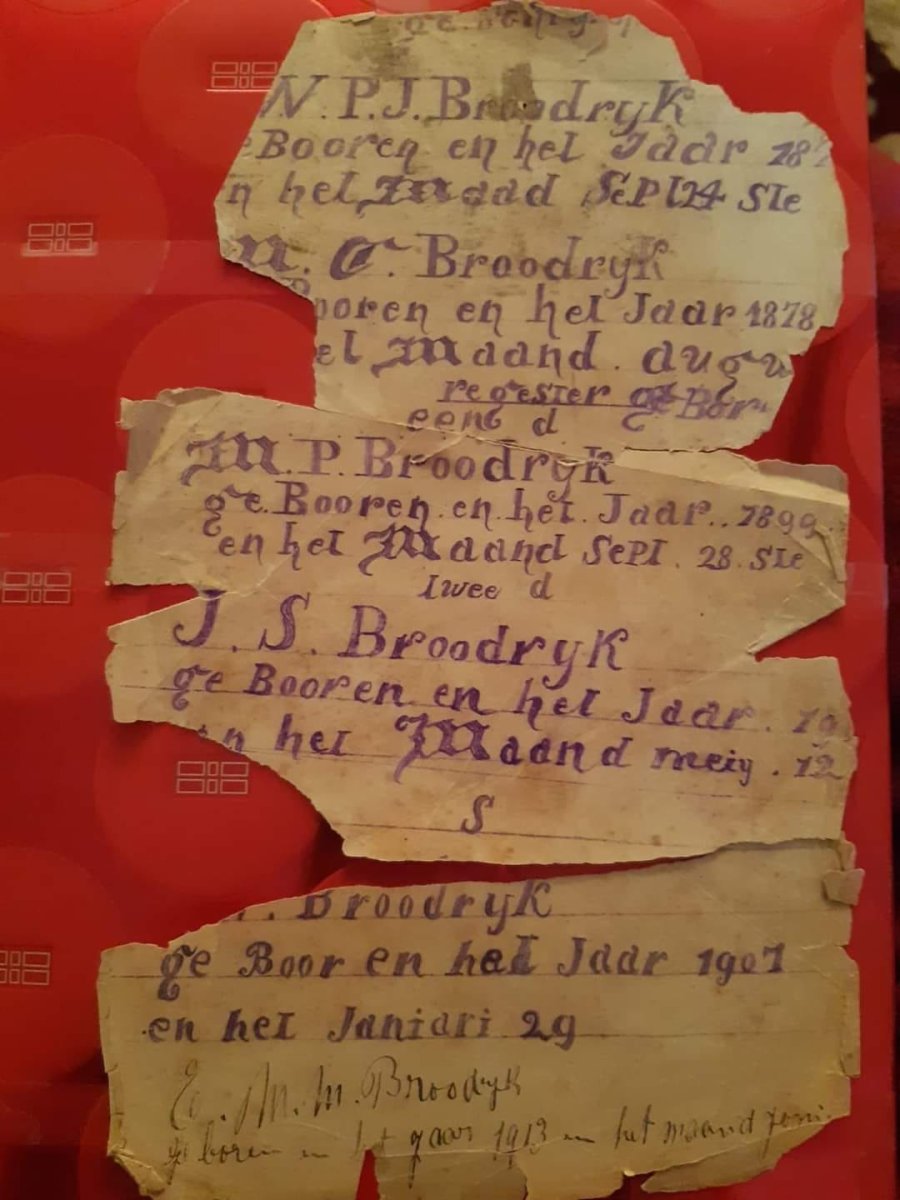 W. P. J. Broodryk
Booren en het Jaar 18
n het Maad Sept 24 Ste
C. Broodryk
ooren en het Jaar 1878
et Maand. augu
regester ge Bor
eens d
M. P. Broodryk
ge. Booren. en. het. Jaar.. 1899
en het Maand Sept. 28. Ste
twee d
J. S. Broodryk
ge Booren en het Jaar. 19
n het Maand meiy. 12
S
Broodryk
ge Booren het Jaar 1907
en het Janiari 29
M. M. Broodryk
geboren in het jaar 1913 en het maand